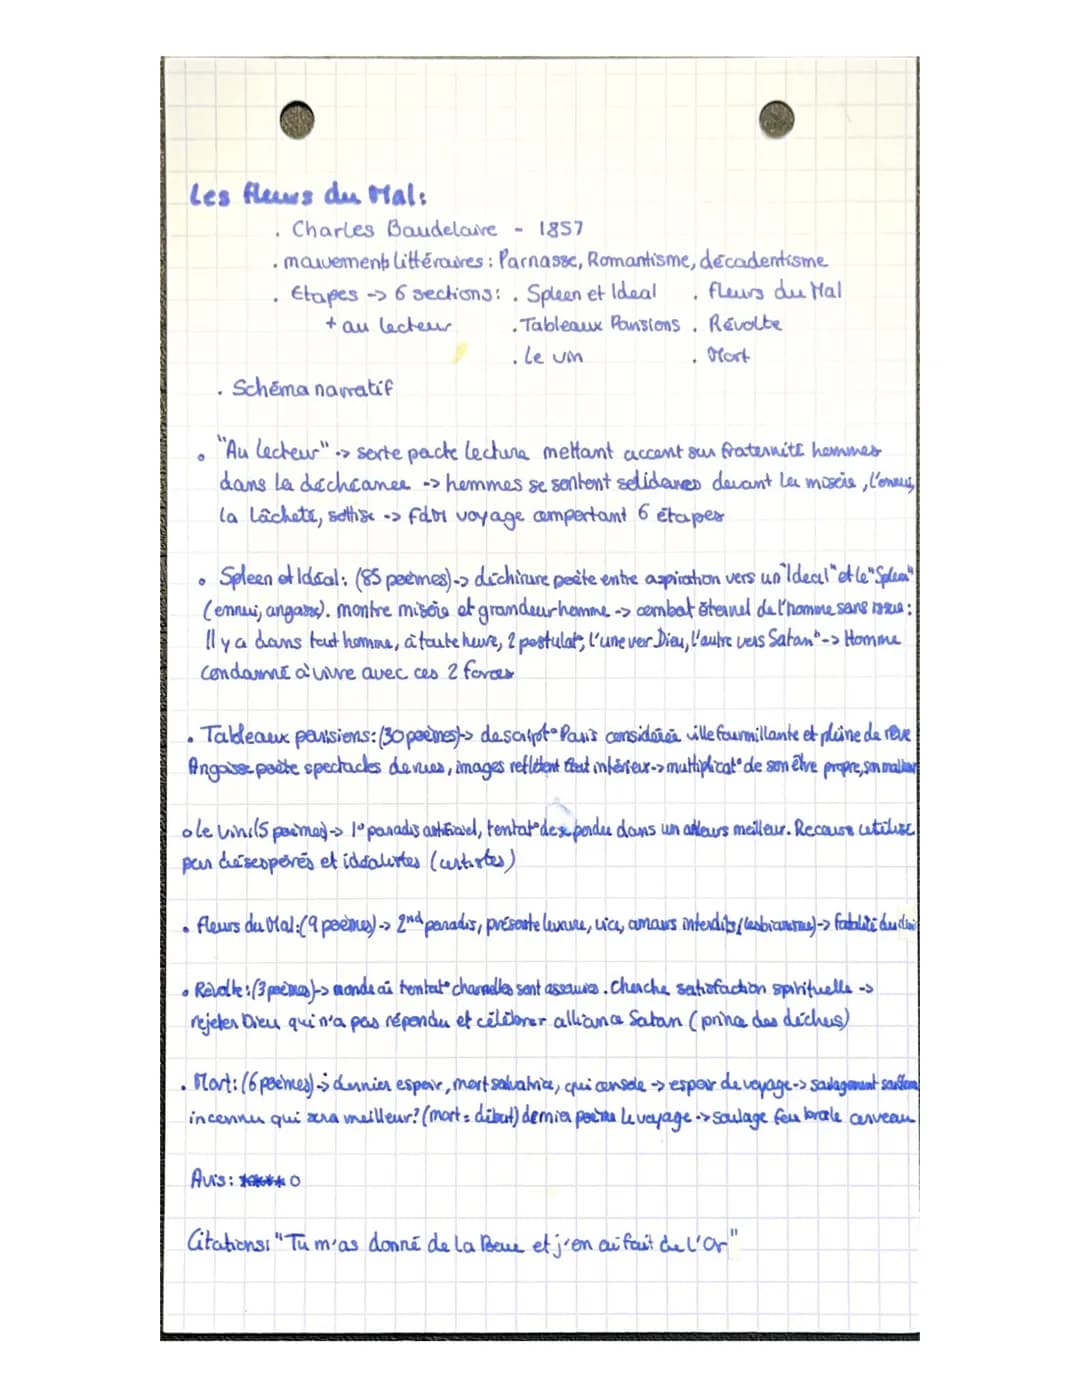 Les fleurs du Mal:
. Charles Baudelaire - 1857
. mouvements littéraires : Parnasse, Romantisme, décadentisme
. Etapes -> 6 sections: . Spleen et Ideal . fleurs du Mal
+ au lecteur . Tableaux Parisiens . Révolte
. Le vin . Mort
. Schéma narratif
. "Au lecteur" -> sorte pacte lecture mettant accent sur fraternité hommes
dans la déchéance -> hommes se sentent solidaires devant la misère, l'ennui,
la lâcheté, sottise -> voyage comportant 6 étapes
. Spleen et Idéal: (85 poèmes) -> déchirure poète entre aspiration vers un "Ideal" et le "Spleen"
(ennui, angoisse). montre misère et grandeur homme -> combat éternel de l'homme sans issue :
Il y a dans tout homme, à toute heure, 2 postulat°, l'une ver Dieu, l'autre vers Satan" -> Homme
condamné à vivre avec ces 2 forces
. Tableaux parisiens: (30 poèmes) -> descript° Paris considérée ville fourmillante et pleine de rêve
Angoisse poète spectacles de rues, images reflètent état intérieur -> multiplicat° de son être propre, son malheur
. Le vin: (5 poèmes) -> 1° paradis artificiel, tentat° de se perdre dans un ailleurs meilleur. Recours utilisé
par désespérés et idéalistes (artistes)
. fleurs du Mal: (9 poèmes) -> 2nd paradis, présente luxure, vice, amours interdits (lesbianisme) -> fatalité du
. Révolte: (3 poèmes) -> monde où tentat° charnelles sont assouvies. Cherche satisfaction spirituelle ->
rejeter Dieu qui n'a pas répondu et célébrer alliance Satan (prince des déchus)
. Mort: (6 poèmes) -> dernier espoir, mort salvatrice, qui console -> espoir de voyage -> soulagement
inconnu qui sera meilleur? (mort = début) dernier poème Le voyage -> soulage feu brûle cerveau
Avis: ****o
Citations: "Tu m'as donné de la Boue et j'en ai fait de l'Or"